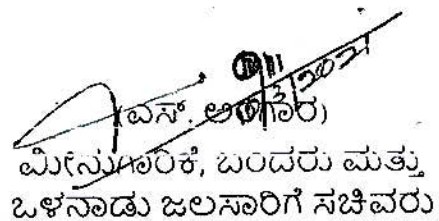 (ಎಸ್. ಅಂಗಾರ)
ಮೀನುಗಾರಿಕೆ, ಬಂದರು ಮತ್ತು
ಒಳನಾಡು ಜಲಸಾರಿಗೆ ಸಚಿವರು